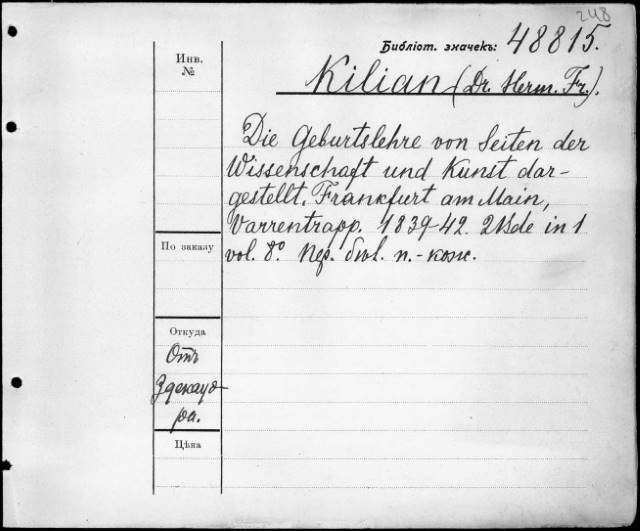 248
Библіот. значекъ: 48815.
Kilian (Dr. Herm. Fr.).
Die Geburtslehre von Seiten der
Wissenschaft und Kunst dar-
gestellt. Frankfurt am Main,
Varrentrapp. 1839-42. 2 Bde in 1
vol. 8º. Пер. п.-кож.
Инв.
№
По заказу
Откуда
Отъ
Здекауе-
ра.
Цѣна